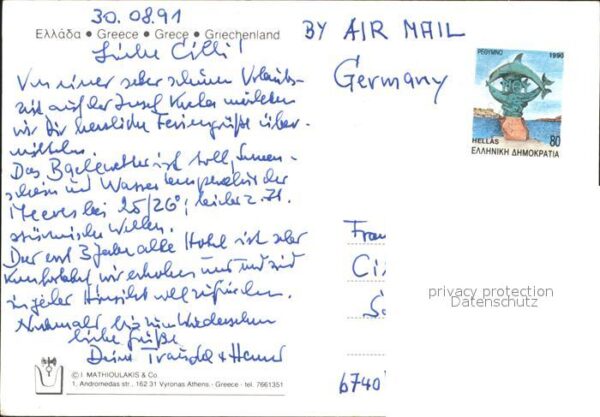 30.08.91
Ελλάδα • Greece • Grece • Griechenland
Liebe Cilli!
BY AIR MAIL
Germany
ΡΕΘΥΜΝΟ 1990
80
HELLAS
ΕΛΛΗΝΙΚΗ ΔΗΜΟΚΡΑΤΙΑ
Von einer sehr schönen Urlaubs-
zeit auf der Insel möchten
wir Dir herzliche Feriengrüße über-
mitteln.
Das Badewetter ist toll, Sonnen-
schein und Wassertemperatur des
Meeres bei 25/26°; leider z. Zt.
stürmische Wellen.
Das erst 3 Jahre alte Hotel ist sehr
komfortabel, wir erholen uns und sind
in jeder Hinsicht voll zufrieden.
Nochmals bis zum Wiedersehen
liebe Grüße
Deine Traudel + Hanns
Frau
Ci
S
6740
privacy protection
Datenschutz
© I. MATHIOULAKIS & Co
1, Andromedas str., 162 31 Vyronas Athens - Greece - tel. 7661351